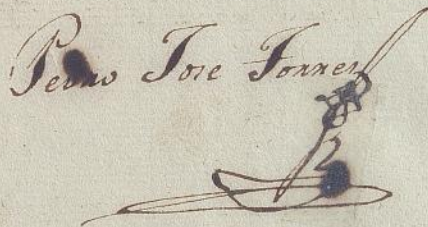 Pedro Jose Forner